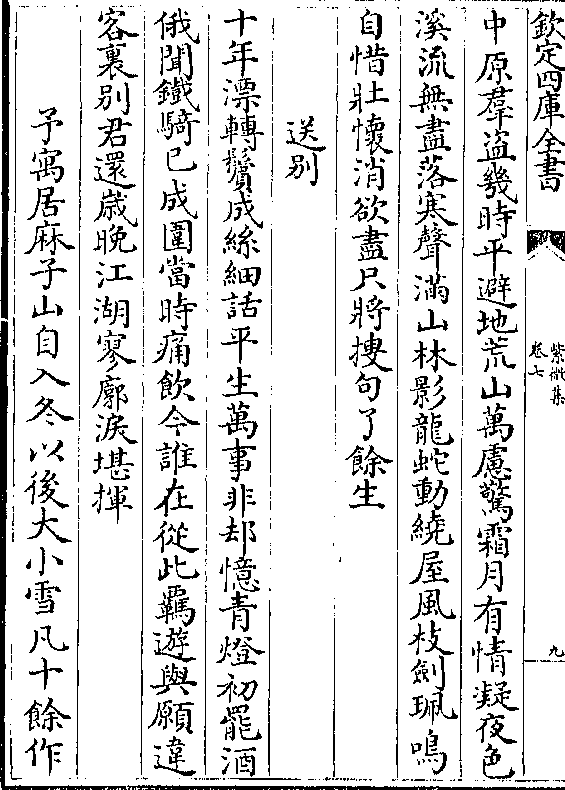 欽定四庫全書
紫微集
卷七
九
中原羣盗幾時平避地荒山萬慮驚霜月有情凝夜色
溪流無盡落寒聲滿山林影龍蛇動繞屋風枝劍珮鳴
自惜壯懷消欲盡只將摟句了餘生
送别
十年漂轉鬢成絲細話平生萬事非却憶青燈初罷酒
俄聞鐵騎已成圍當時痛飲今誰在從此羈遊與願違
客裏别君還歳晚江湖寥廓淚堪揮
予寓居麻子山自入冬以後大小雪凡十餘作